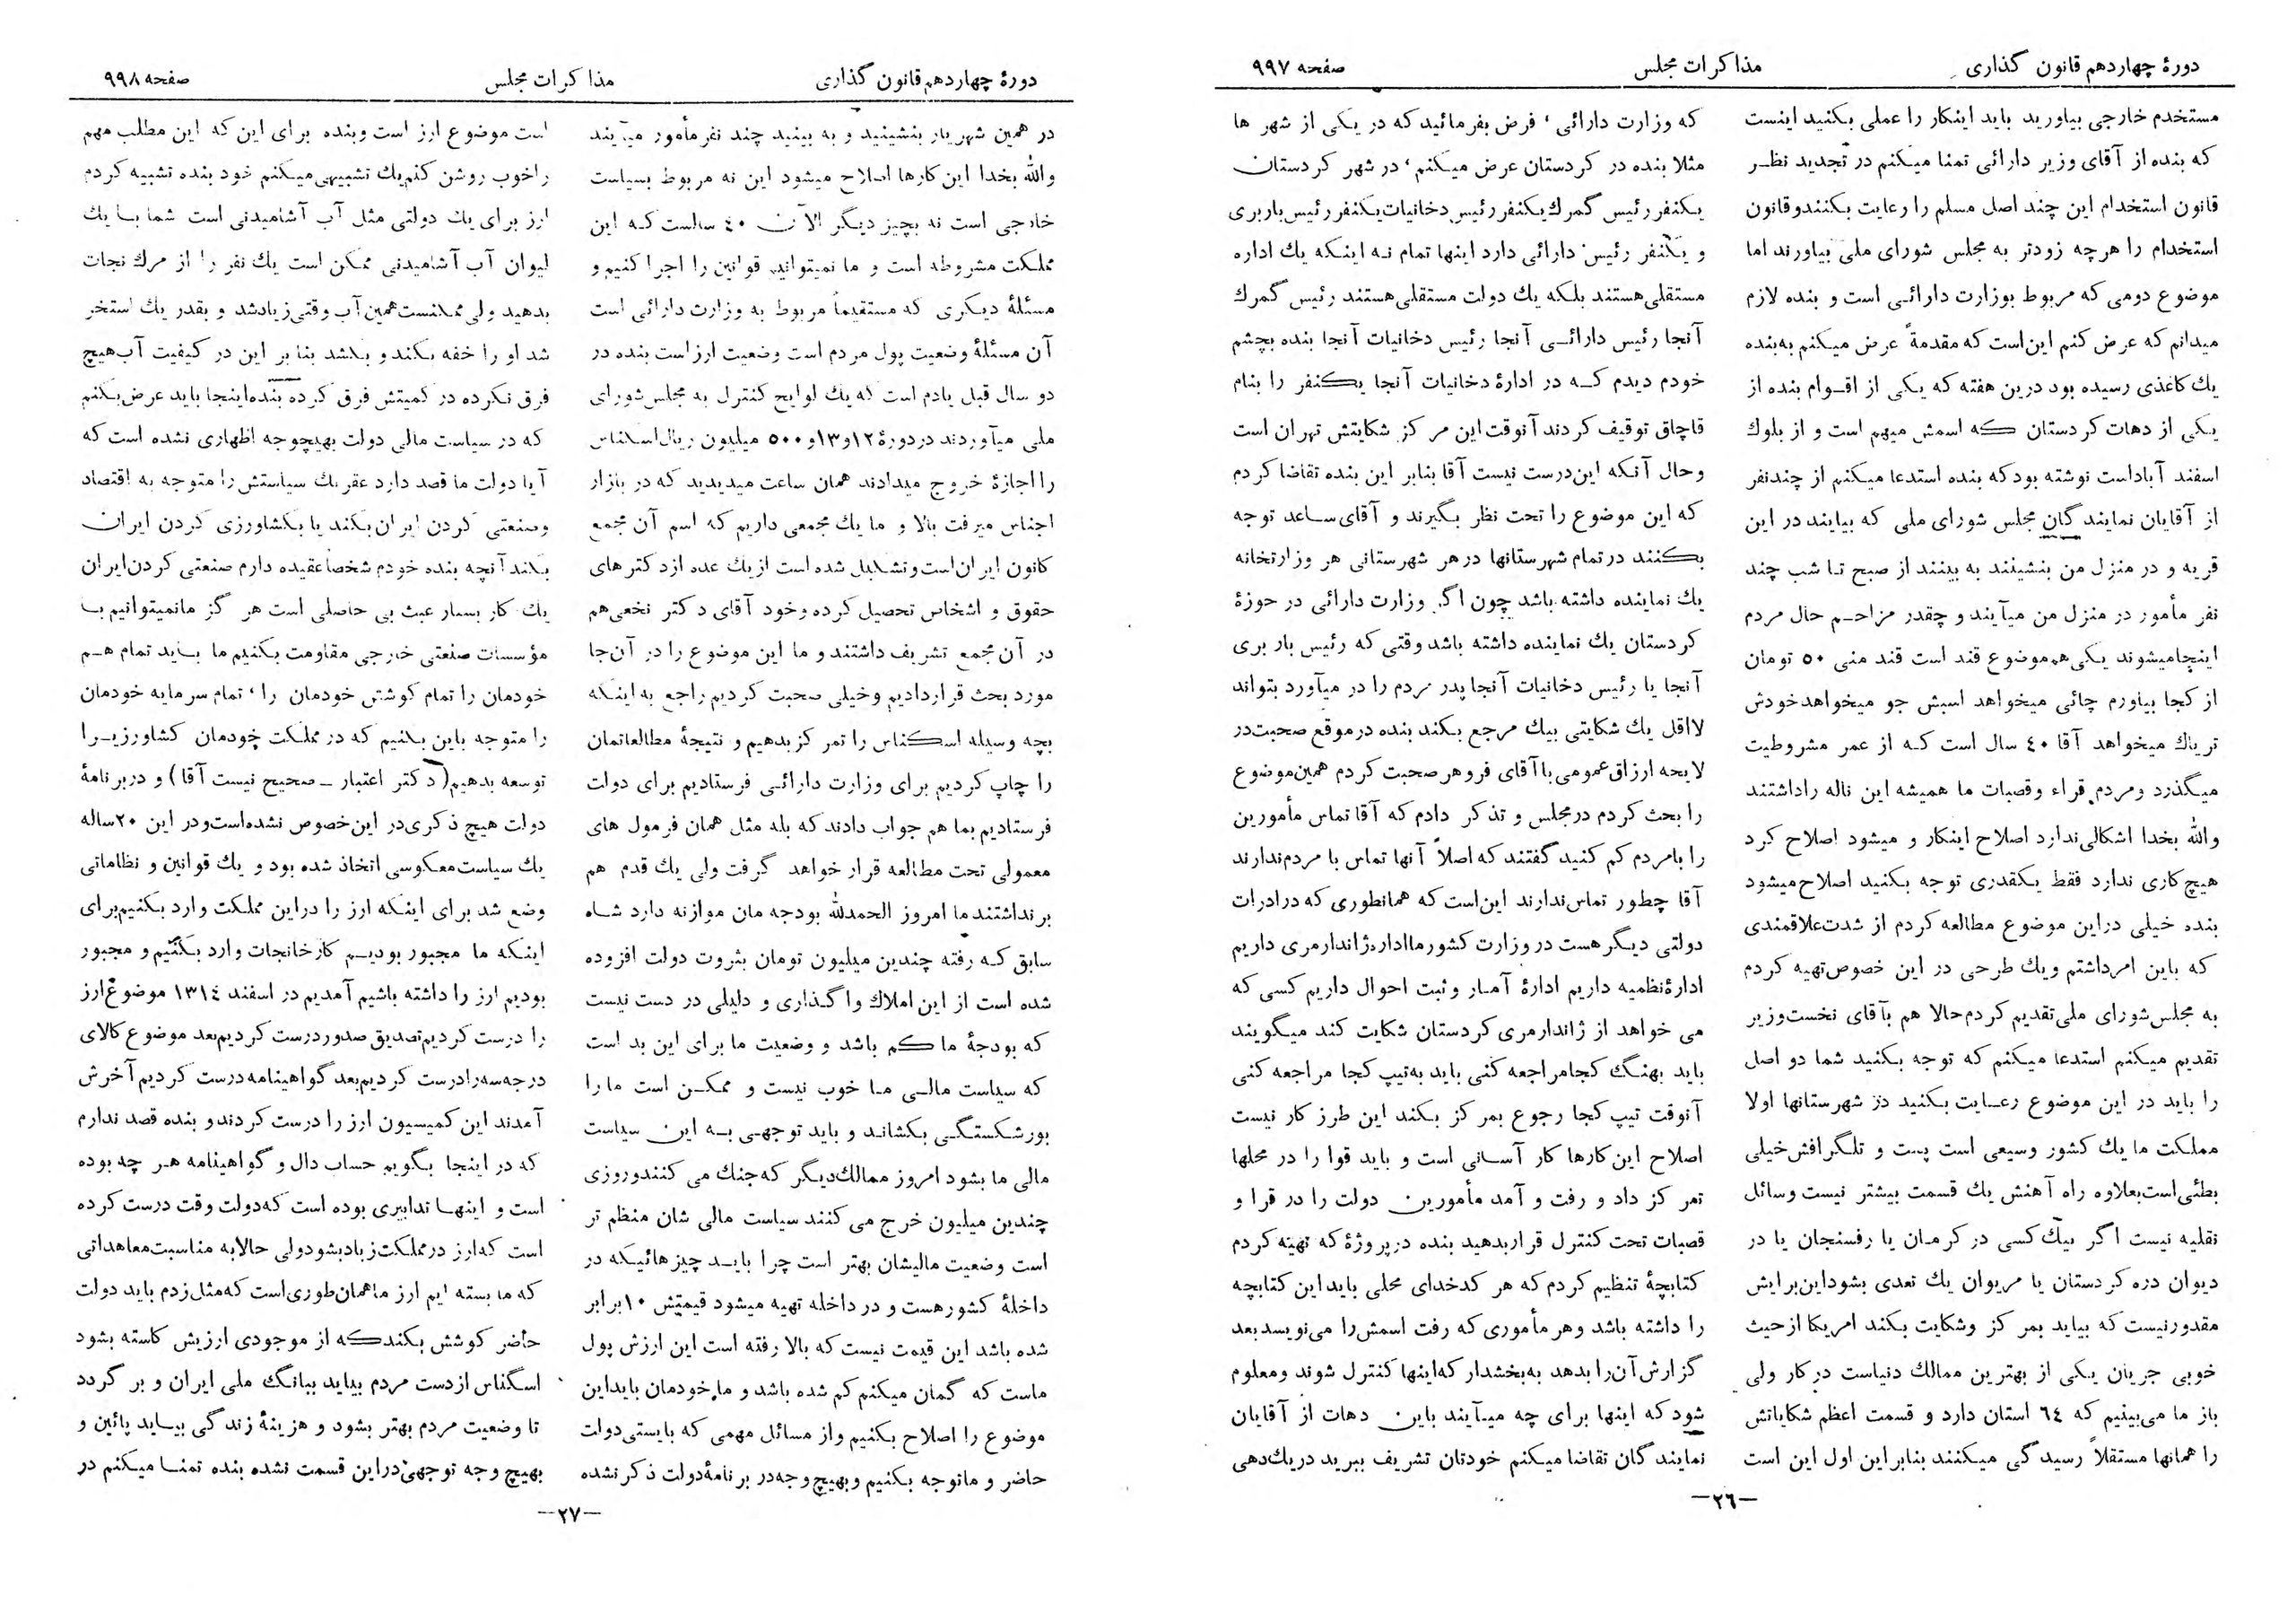 دورهٔ چهاردهم قانون گذاری
مذاکرات مجلس
صفحه ۹۹۷
مستخدم خارجی بیاورید باید اینکار را عملی بکنید اینست
که بنده از آقای وزیر دارائی تمنا میکنم در تجدید نظر
قانون استخدام این چند اصل مسلم را رعایت بکنند و قانون
استخدام را هرچه زودتر به مجلس شورای ملی بیاورند اما
موضوع دومی که مربوط بوزارت دارائی است و بنده لازم
میدانم که عرض کنم این است که مقدمةً عرض میکنم به بنده
یك کاغذی رسیده بود درین هفته که یکی از اقوام بنده از
یکی از دهات کردستان که اسمش میهم است و از بلوك
اسفند آباد است نوشته بود که بنده استدعا میکنم از چندنفر
از آقایان نمایندگان مجلس شورای ملی که بیایند در این
قریه و در منزل من بنشینند به بینند از صبح تا شب چند
نفر مأمور در منزل من میآیند و چقدر مزاحم حال مردم
اینجا میشوند یکی هم موضوع قند است قند منی ۵۰ تومان
از کجا بیاورم چائی میخواهد اسبش جو میخواهد خودش
تریاك میخواهد آقا ۴۰ سال است که از عمر مشروطیت
میگذرد و مردم قراء وقصبات ما همیشه این ناله را داشتند
والله بخدا اشکالی ندارد اصلاح اینکار و میشود اصلاح کرد
هیچ کاری ندارد فقط یکقدری توجه بکنید اصلاح میشود
بنده خیلی دراین موضوع مطالعه کردم از شدت علاقمندی
که باین امر داشتم ویك طرحی در این خصوص تهیه کردم
به مجلس شورای ملی تقدیم کردم حالا هم بآقای نخست وزیر
تقدیم میکنم استدعا میکنم که توجه بکنید شما دو اصل
را باید در این موضوع رعایت بکنید در شهرستانها اولا
مملکت ما یك کشور وسیعی است پست و تلگرافش خیلی
بطئی است بعلاوه راه آهنش یك قسمت بیشتر نیست وسائل
نقلیه نیست اگر بیك کسی در کرمان یا رفسنجان یا در
دیوان دره کردستان یا مریوان یك تعدی بشود این برایش
مقدور نیست که بیاید بمرکز وشکایت بکند امریکا از حیث
خوبی جریان یکی از بهترین ممالك دنیاست در کار ولی
باز ما می بینیم که ۶۴ استان دارد و قسمت اعظم شکایاتش
را همانها مستقلاً رسیدگی میکنند بنابراین اول این است
که وزارت دارائی ، فرض بفرمائید که در یکی از شهر ها
مثلا بنده در کردستان عرض میکنم ، در شهر کردستان
یکنفر رئیس گمرك یکنفر رئیس دخانیات یکنفر رئیس باربری
و یکنفر رئیس دارائی دارد اینها تمام نه اینکه یك اداره
مستقلی هستند بلکه یك دولت مستقلی هستند رئیس گمرك
آنجا رئیس دارائی آنجا رئیس دخانیات آنجا بنده بچشم
خودم دیدم که در ادارهٔ دخانیات آنجا یکنفر را بنام
قاچاق توقیف کردند آنوقت این مرکز شکایتش تهران است
وحال آنکه این درست نیست آقا بنابر این بنده تقاضا کردم
که این موضوع را تحت نظر بگیرند و آقای ساعد توجه
بکنند در تمام شهرستانها در هر شهرستانی هر وزارتخانه
یك نماینده داشته باشد چون اگر وزارت دارائی در حوزهٔ
کردستان یك نماینده داشته باشد وقتی که رئیس باربری
آنجا یا رئیس دخانیات آنجا پدر مردم را در میآورد بتواند
لااقل یك شکایتی بیك مرجع بکند بنده در موقع صحبت در
لایحه ارزاق عمومی با آقای فروهر صحبت کردم همین موضوع
را بحث کردم در مجلس و تذکر دادم که آقا تماس مأمورین
را با مردم کم کنید گفتند که اصلاً آنها تماس با مردم ندارند
آقا چطور تماس ندارند این است که همانطوری که در ادارات
دولتی دیگر هست در وزارت کشور ما اداره ژاندارمری داریم
ادارهٔ نظمیه داریم ادارهٔ آمار و ثبت احوال داریم کسی که
می خواهد از ژاندارمری کردستان شکایت کند میگویند
باید بهنگ کجا مراجعه کنی باید به تیپ کجا مراجعه کنی
آنوقت تیپ کجا رجوع بمرکز بکند این طرز کار نیست
اصلاح این کارها کار آسانی است و باید قوا را در محلها
تمرکز داد و رفت و آمد مأمورین دولت را در قرا و
قصبات تحت کنترل قرار بدهید بنده در پروژهٔ که تهیه کردم
کتابچهٔ تنظیم کردم که هر کدخدای محلی باید این کتابچه
را داشته باشد و هر مأموری که رفت اسمش را می نویسد بعد
گزارش آن را بدهد به بخشدار که اینها کنترل شوند ومعلوم
شود که اینها برای چه میآیند باین دهات از آقایان
نمایندگان تقاضا میکنم خودتان تشریف ببرید در یك دهی
—۲۶—
دورهٔ چهاردهم قانون گذاری
مذاکرات مجلس
صفحه ۹۹۸
در همین شهریار بنشینید و به بینید چند نفر مأمور میآیند
والله بخدا این کارها اصلاح میشود این نه مربوط بسیاست
خارجی است نه بچیز دیگر الآن ۴۰ سالست که این
مملکت مشروطه است و ما نمیتوانیم قوانین را اجرا کنیم و
مسئلهٔ دیگری که مستقیماً مربوط به وزارت دارائی است
آن مسئلهٔ وضعیت پول مردم است وضعیت ارز است بنده در
دو سال قبل یادم است که یك لوایح کنترل به مجلس شورای
ملی میآوردند در دورهٔ ۱۲و۱۳و ۵۰۰ میلیون ریال اسکناس
را اجازهٔ خروج میدادند همان ساعت میدیدید که در بازار
اجناس میرفت بالا و ما یك مجمعی داریم که اسم آن مجمع
کانون ایران است و تشکیل شده است از یك عده از دکترهای
حقوق و اشخاص تحصیل کرده وخود آقای دکتر نخعی هم
در آن مجمع تشریف داشتند و ما این موضوع را در آن جا
مورد بحث قرار دادیم وخیلی صحبت کردیم راجع به اینکه
بچه وسیله اسکناس را تمرکز بدهیم و نتیجهٔ مطالعاتمان
را چاپ کردیم برای وزارت دارائی فرستادیم برای دولت
فرستادیم بما هم جواب دادند که بله مثل همان فرمول های
معمولی تحت مطالعه قرار خواهد گرفت ولی یك قدم هم
برنداشتند ما امروز الحمدلله بودجه مان موازنه دارد شاه
سابق که رفته چندین میلیون تومان بثروت دولت افزوده
شده است از این املاك واگذاری و دلیلی در دست نیست
که بودجهٔ ما کم باشد و وضعیت ما برای این بد است
که سیاست مالی ما خوب نیست و ممکن است ما را
بورشکستگی بکشاند و باید توجهی به این سیاست
مالی ما بشود امروز ممالك دیگر که جنك می کنند و روزی
چندین میلیون خرج می کنند سیاست مالی شان منظم تر
است وضعیت مالیشان بهتر است چرا باید چیزهائیکه در
داخلهٔ کشور هست و در داخله تهیه میشود قیمتش ۱۰ برابر
شده باشد این قیمت نیست که بالا رفته است این ارزش پول
ماست که گمان میکنم کم شده باشد و ما خودمان باید این
موضوع را اصلاح بکنیم و از مسائل مهمی که بایستی دولت
حاضر و ما توجه بکنیم و بهیچ وجه در برنامهٔ دولت ذکر نشده
است موضوع ارز است وبنده برای این که این مطلب مهم
را خوب روشن کنم یك تشبیهی میکنم خود بنده تشبیه کردم
ارز برای یك دولتی مثل آب آشامیدنی است شما با یك
لیوان آب آشامیدنی ممکن است یك نفر را از مرك نجات
بدهید ولی ممکنست همین آب وقتی زیاد شد و بقدر یك استخر
شد او را خفه بکند و بکشد بنا بر این در کیفیت آب هیچ
فرق نکرده در کمیتش فرق کرده بنده اینجا باید عرض بکنم
که در سیاست مالی دولت بهیچوجه اظهاری نشده است که
آیا دولت ما قصد دارد عقربك سیاستش را متوجه به اقتصاد
وصنعتی کردن ایران بکند یا بکشاورزی کردن ایران
بکند آنچه بنده خودم شخصاً عقیده دارم صنعتی کردن ایران
یك کار بسیار عبث بی حاصلی است هر گز ما نمیتوانیم با
مؤسسات صنعتی خارجی مقاومت بکنیم ما باید تمام هم
خودمان را تمام کوشش خودمان را ، تمام سرمایه خودمان
را متوجه باین بکنیم که در مملکت خودمان کشاورزی را
توسعه بدهیم (دکتر اعتبار ـ صحیح نیست آقا) و در برنامهٔ
دولت هیچ ذکری در این خصوص نشده است و در این ۲۰ ساله
یك سیاست معکوسی اتخاذ شده بود و یك قوانین و نظاماتی
وضع شد برای اینکه ارز را در این مملکت وارد بکنیم برای
اینکه ما مجبور بودیم کارخانجات وارد بکنیم و مجبور
بودیم ارز را داشته باشیم آمدیم در اسفند ۱۳۱۴ موضوع ارز
را درست کردیم تصدیق صدور درست کردیم بعد موضوع کالای
درجه سه را درست کردیم بعد گواهینامه درست کردیم آخرش
آمدند این کمیسیون ارز را درست کردند و بنده قصد ندارم
که در اینجا بگویم حساب دال و گواهینامه هر چه بوده
است و اینها تدابیری بوده است که دولت وقت درست کرده
است که ارز در مملکت زیاد بشود ولی حالا به مناسبت معاهداتی
که ما بسته ایم ارز ما همان طوری است که مثل زدم باید دولت
حاضر کوشش بکند که از موجودی ارزیش کاسته بشود
اسگناس از دست مردم بیاید ببانگ ملی ایران و بر گردد
تا وضعیت مردم بهتر بشود و هزینهٔ زندگی بیاید پائین و
بهیچ وجه توجهی در این قسمت نشده بنده تمنا میکنم در
—۲۷—